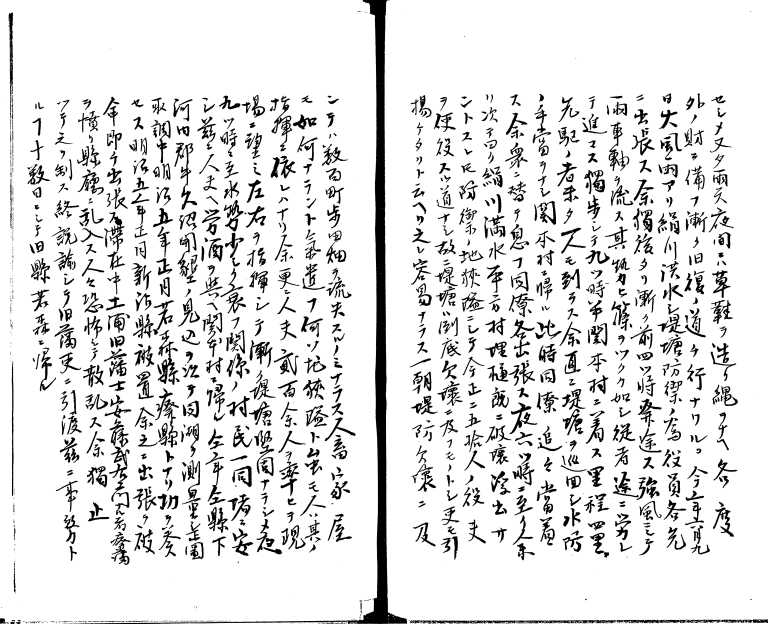 セシメ又タ雨天夜間ハ草鞋ヲ造リ縄ヲナヘ各度
外ノ財ニ備フ漸ク旧復ノ道ヲ行ナワル今年八月九
日大風雨アリ絹川洪水シ堤塘防禦ノ為役員各先
ニ出張ス余獨後タリ漸ク前四ツ時発途ス強風ニシテ
雨車軸ヲ流ス其勢ヒ篠ヲツク如シ従者途ニ労レ
テ進マス獨歩シテ九ツ時半関本村ニ着ス里程四里
先駆ノ者未タ一人モ到ラス余直ニ堤塘ヲ巡回シ水防
ノ手當ヲナシ関本村ニ帰ル此時同僚追々當着
ス余衆ニ替テ息フ同僚各出張ス夜六ツ時ニ至リ余
リ次テ四ツ絹川満水本方村埋樋既ニ破壊浮出サ
ントスレ𪜈防禦ノ地狭隘ニシテ今正ニ五拾人ノ役夫
ヲ使役スル道ナシ故堤塘ハ到底欠壊ニ及フモノトシ吏モ引
揚ケタリト云ヘリ之レ容易ナラス一朝堤防欠壊ニ及
ンテハ数百町歩田畑ヲ流失スルノミナラス人畜家屋
モ如何ナラント氣遣フ何ソ地狭隘ト雖モ人ハ其ノ
指揮ニ依レハナリ余更ニ人夫貳百余人ヲ率ヒテ現
場ニ望ミ左右ヲ指揮シテ漸ク堤塘堅固ナラシメ夜
九ツ時ニ至水勢少シク衰フ関係ノ村民一同堵ニ安
シ茲ニ人夫ヘ労酒ヲ与ヘ関本村ニ帰ル仝年仝縣下
河内郡牛久沼開墾ノ見込ヲ以テ同湖ヲ測量シ歪圖
取調中明治五年正月若森縣廃縣トナリ功ヲ奏
セス明治五年十一月新治縣被置余之ニ出張ヲ被
命即チ出張ス滞在中土浦旧藩士安藤武右エ門ノ者廃藩
ヲ憤リ縣廳ニ乱入ス人々恐怖シテ散乱ス余獨止
ツテ之ヲ制ス終説諭シテ旧藩吏ニ引渡茲ニ事終ヘト
ルフ十数日ニシテ旧縣若森ニ帰ル